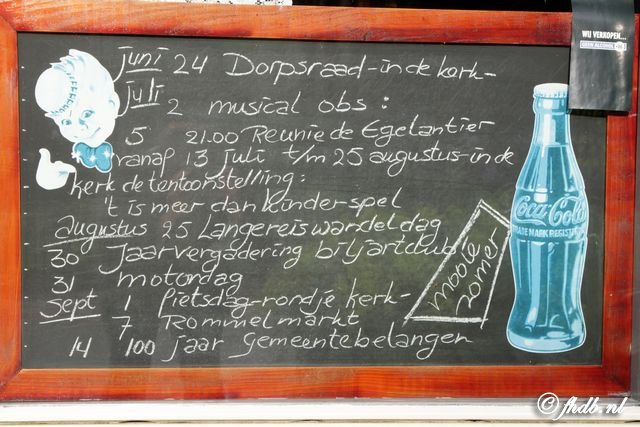 juni 24 Dorpsraad-in de kerk-
juli
2 musical obs:
5 21.00 Reunie de Egelantier
vanaf 13 juli t/m 25 augustus-in de
kerk de tentoonstelling:
't is meer dan kinderspel
augustus 25 Langereis wandeldag
30 Jaarvergadering biljartclub
31 motordag
sept 1 Fietsdag-rondje kerk-
7 Rommelmarkt
14 100 jaar Gemeentebelangen
mooie
zomer
Coca-Cola
TRADE MARK REGISTERED
WIJ VERKOPEN...
GEEN ALCOHOL
© fhdb.nl